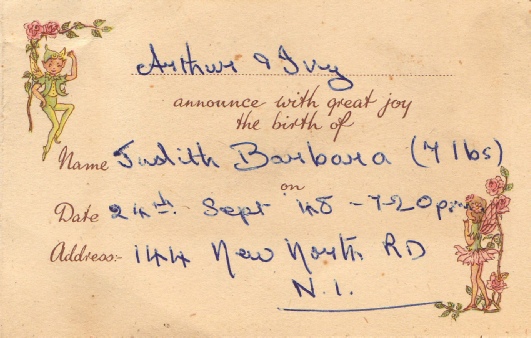 Arthur & Ivy
announce with great joy
the birth of
Name Judith Barbara (7 lbs)
on
Date 24th. Sept 48 - 7-20pm
Address:- 144 New North RD
N.1.